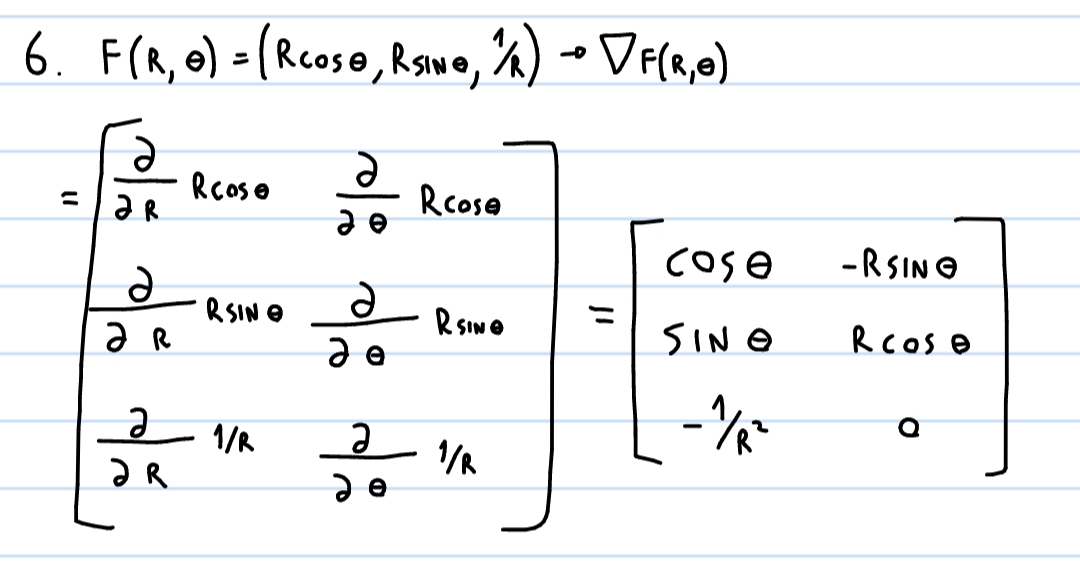 6. F(R, θ) = (Rcosθ, Rsinθ, 1/R) → ∇F(R,θ)
= [ ∂/∂R Rcosθ   ∂/∂θ Rcosθ
∂/∂R Rsinθ   ∂/∂θ Rsinθ
∂/∂R 1/R   ∂/∂θ 1/R ]
= [ cosθ   -Rsinθ
sinθ   Rcosθ
-1/R²   0 ]